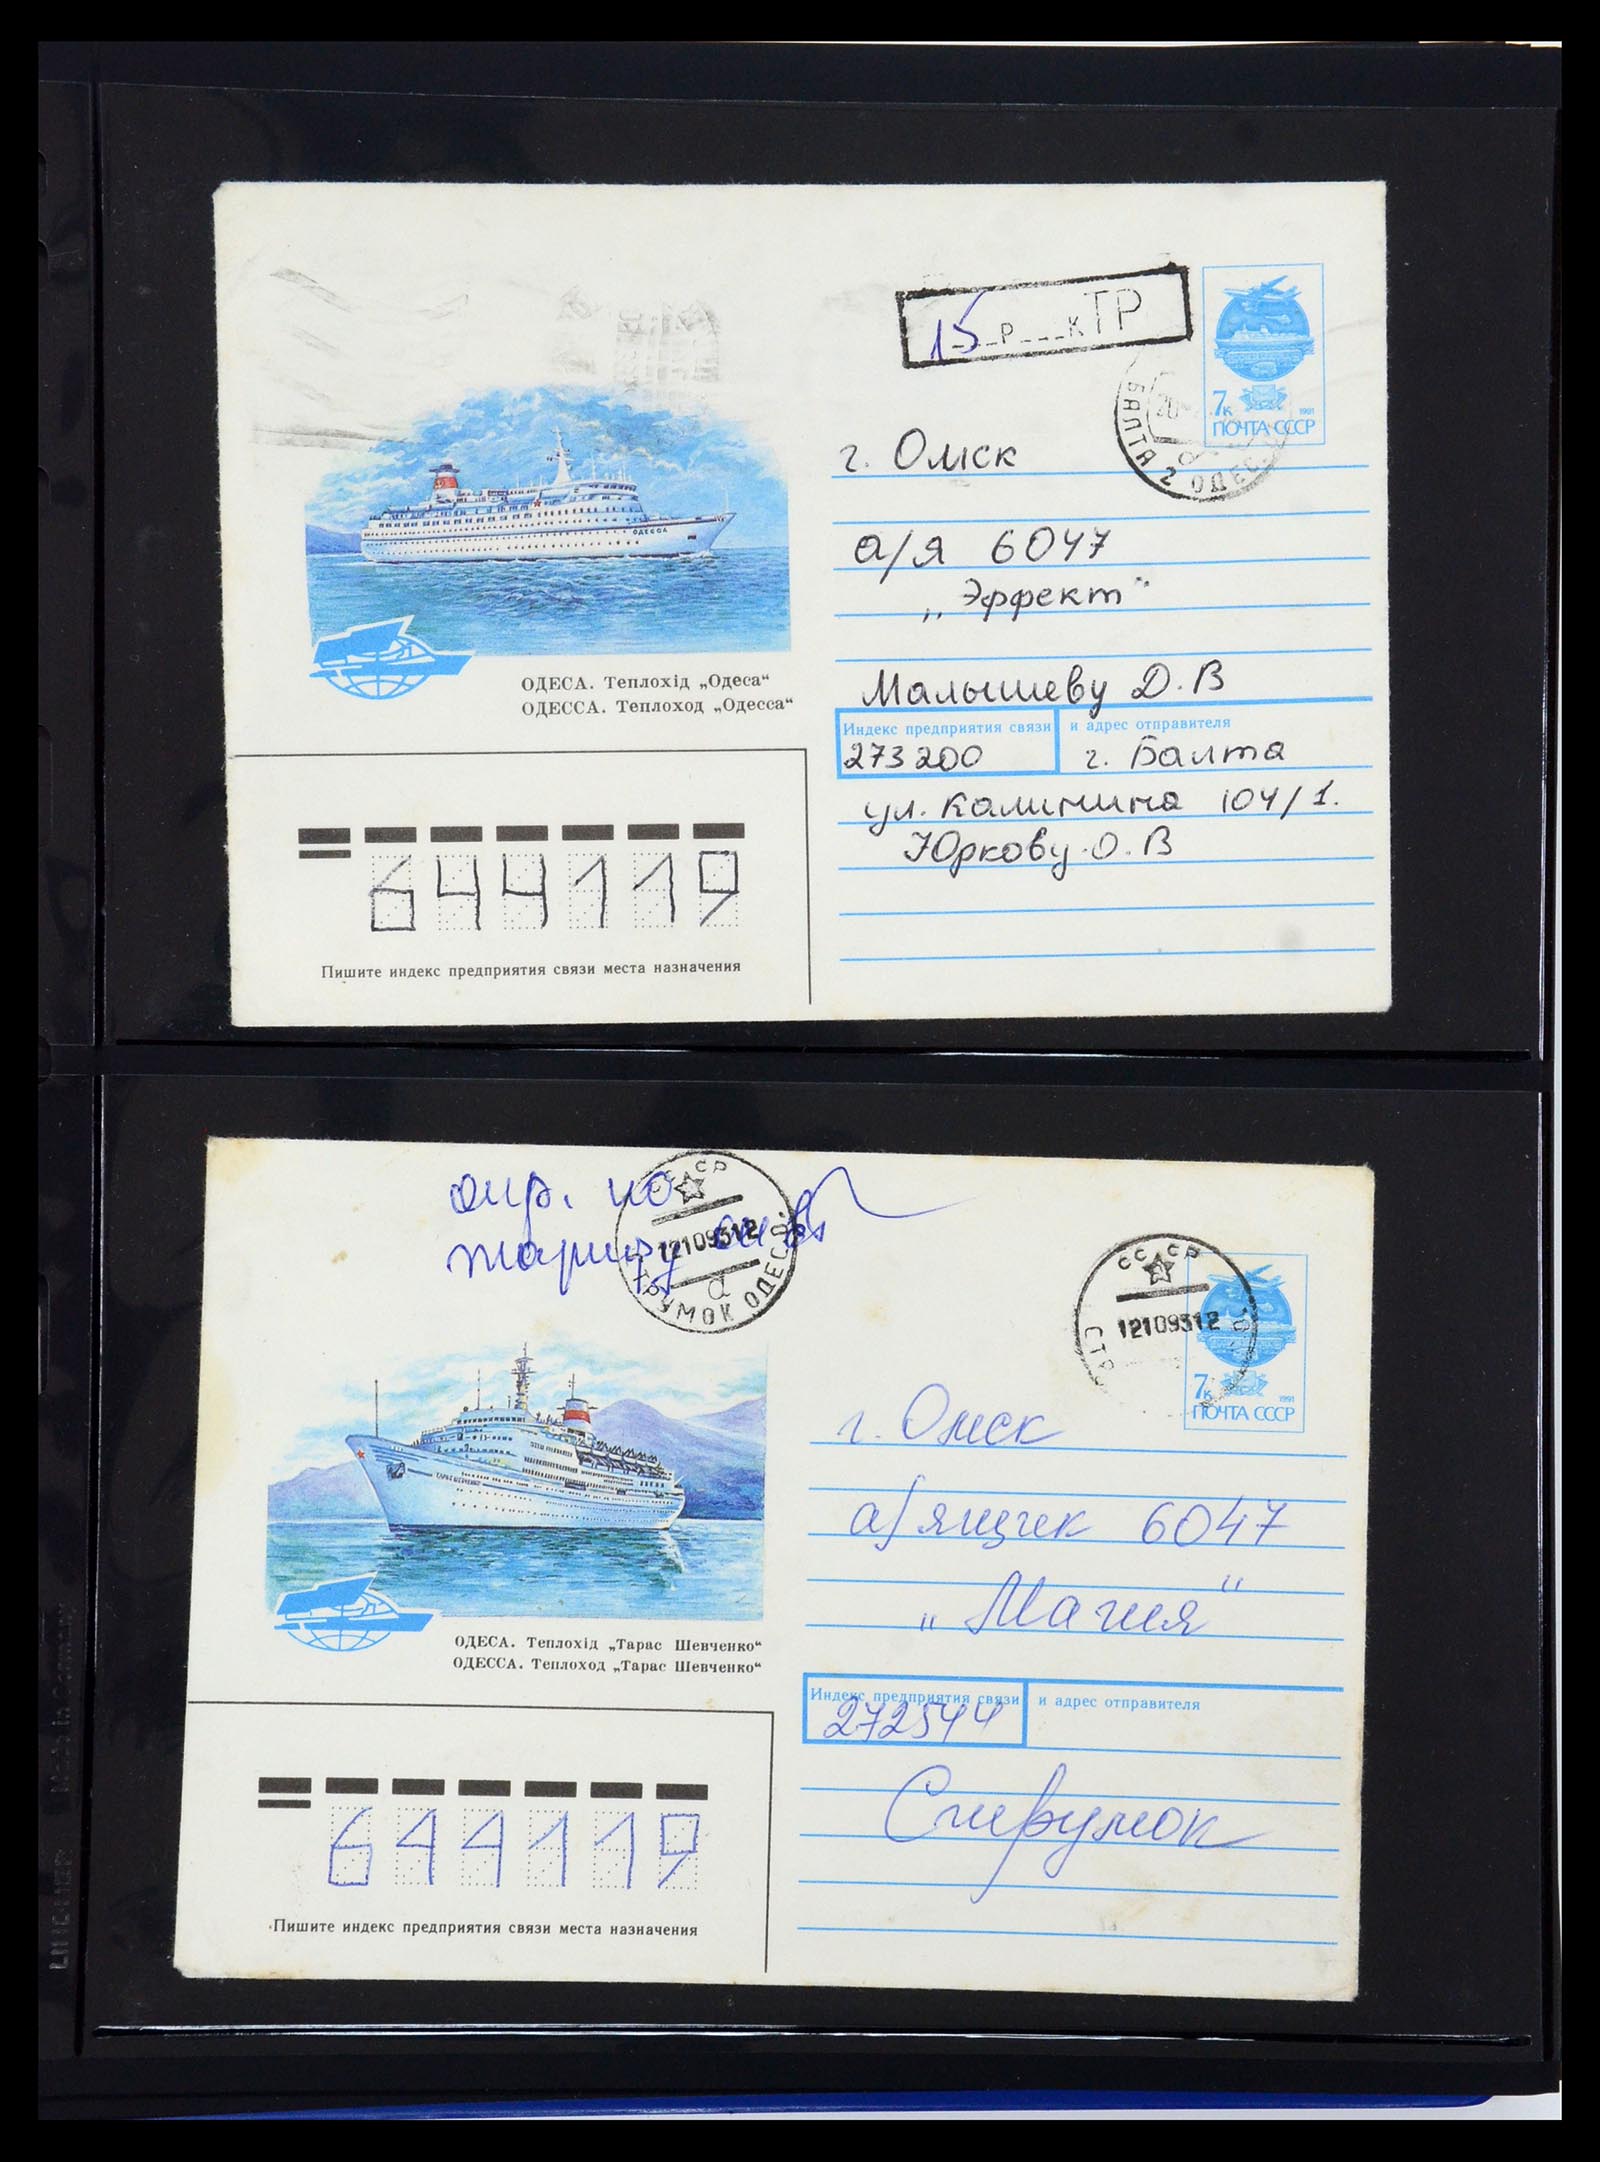 15 Р К ТР
7к 1991
ПОЧТА СССР
БАЛТА 2 ОДЕС
г. Омск
а/я 6047
„Эффект“
Малышеву Д.В
ОДЕССА
ОДЕСА. Теплохід „Одеса“
ОДЕССА. Теплоход „Одесса“
Индекс предприятия связи и адрес отправителя
273200 г. Балта
ул. Калинина 104/1.
Юркову О.В
644119
Пишите индекс предприятия связи места назначения
опл. по
тарифу
СССР
12109312
а
СССР
12109312
7к 1991
ПОЧТА СССР
г. Омск
а/ящик 6047
„Магия“
ТАРАС ШЕВЧЕНКО
ОДЕСА. Теплохід „Тарас Шевченко“
ОДЕССА. Теплоход „Тарас Шевченко“
Индекс предприятия связи и адрес отправителя
272544
Струмок
644119
Пишите индекс предприятия связи места назначения